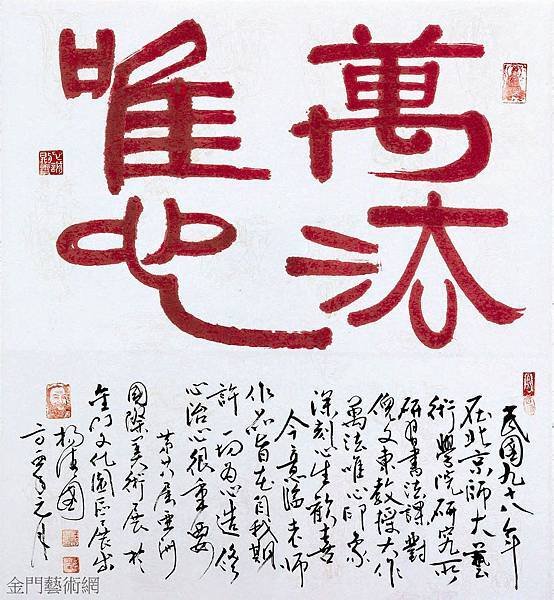 萬法
唯心
民國九十八年
在北京師大藝
術學院研究所
研習書法課對
倪文東教授大作
萬法唯心印象
深刻心生歡喜
今意臨老师
作品旨在自我期
許一切為心造修
心治心很重要
屆亞洲
國際美術展於
金門文化園區展出
楊清國
元月
金門藝術網